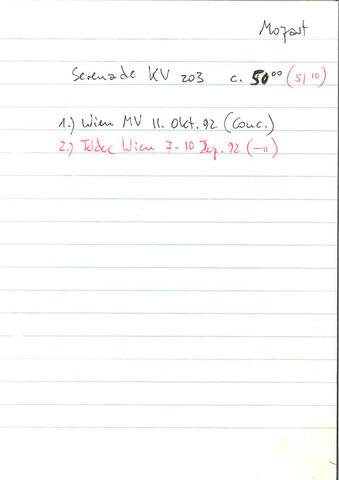 Mozart
Serenade KV 203 c. 50⁰⁰ (51'10)
1.) Wien MV 11. Okt. 92 (Conc.)
2.) Teldec Wien 7-10 Dez. 92 (-"-)